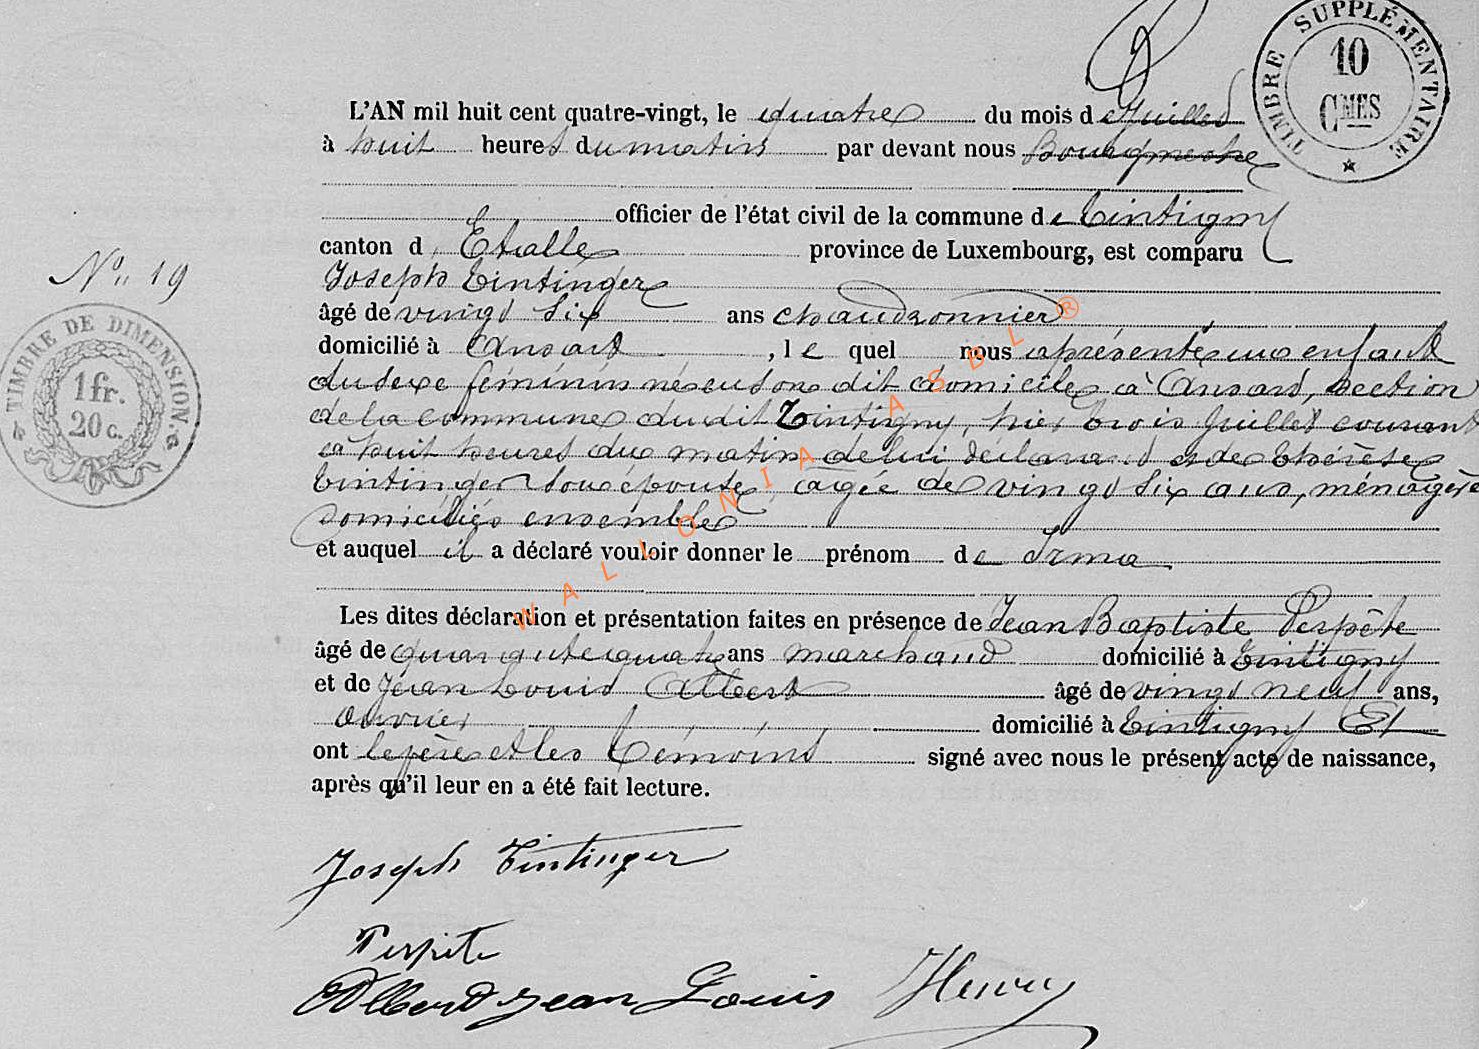 TIMBRE SUPPLÉMENTAIRE
10
CMES
L'AN mil huit cent quatre-vingt, le quatre du mois de Juillet
à huit heures du matin par devant nous Bourgmestre
officier de l'état civil de la commune de Tintigny
canton d'Etalle province de Luxembourg, est comparu
Nº 19
Joseph Tintinger
âgé de vingt six ans chaudronnier
domicilié à Ansart, le quel nous a présenté un enfant
du sexe féminin né en son dit domicile à Ansart, section
de la commune du dit Tintigny, hier trois Juillet courant
à huit heures du matin de lui déclarant et de Thérèse
Tintinger son épouse, agée de vingt six ans, ménagère
domiciliés ensemble
et auquel il a déclaré vouloir donner le prénom de Irma
Les dites déclaration et présentation faites en présence de Jean Baptiste Perpête
âgé de quarante quatre ans marchand domicilié à Tintigny
et de Jean Louis Albert âgé de vingt neuf ans,
ouvrier domicilié à Tintigny Et
ont le père et les témoins signé avec nous le présent acte de naissance,
après qu'il leur en a été fait lecture.
TIMBRE DE DIMENSION.
1 fr.
20 c.
WALLONIA ASBL ®
Joseph Tintinger
Perpète
Albert Jean Louis Henry